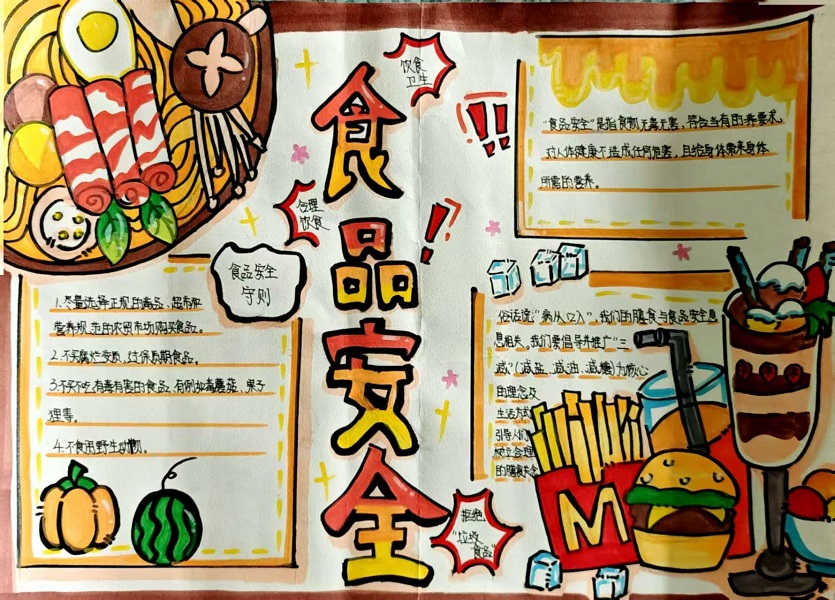 食品安全
饮食
卫生
合理
饮食
拒绝
"垃圾
食品"
"食品安全"是指食物无毒无害，符合当有的营养要求，
对人体健康不造成任何危害，且给身体带来身体
所需的营养。
食品安全
守则
1.尽量选择正规的商品，超市和
营养规范的农贸市场购买食品。
2.不买腐烂变质，过保质期食品。
3.不买不吃有毒有害的食品，有例如毒蘑菇、果子
狸等。
4.不食用野生动物。
俗话说："病从口入"，我们的膳食与食品安全息
息相关。我们要倡导并推广"三
减"（减盐、减油、减糖）为核心
的理念及
生活方式
引导人们
树立合理
的膳食观念
M